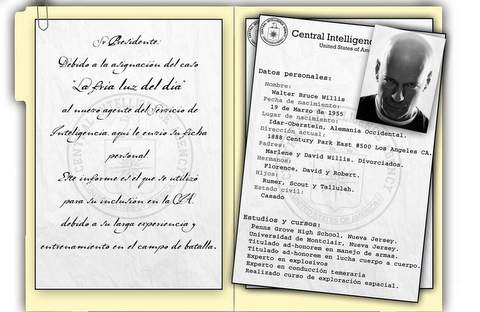 Sr. Presidente:
Debido a la asignación del caso
"La fria luz del día"
al nuevo agente del Servicio de
Inteligencia, aqui le envío su ficha
personal.
Este informe es el que se utilizó
para su inclusión en la CIA,
debido a su larga experiencia y
entrenamiento en el campo de batalla.
Central Intelligence
United States of Americ
Datos personales:
Nombre:
Walter Bruce Willis
Fecha de nacimiento:
19 de Marzo de 1955
Lugar de nacimiento:
Idar-Oberstein, Alemania Occidental.
Dirección actual:
1888 Century Park East #500 Los Angeles CA.
Padres:
Marlene y David Willis. Divorciados.
Hermanos:
Florence, David y Robert.
Hijos:
Rumer, Scout y Tallulah.
Estado civil:
Casado
Estudios y cursos:
Penns Grove High School, Nueva Jersey.
Universidad de Montclair, Nueva Jersey.
Titulado ad-honorem en manejo de armas.
Titulado ad-honorem en lucha cuerpo a cuerpo.
Experto en explosivos
Experto en conducción temeraria
Realizado curso de exploración espacial.